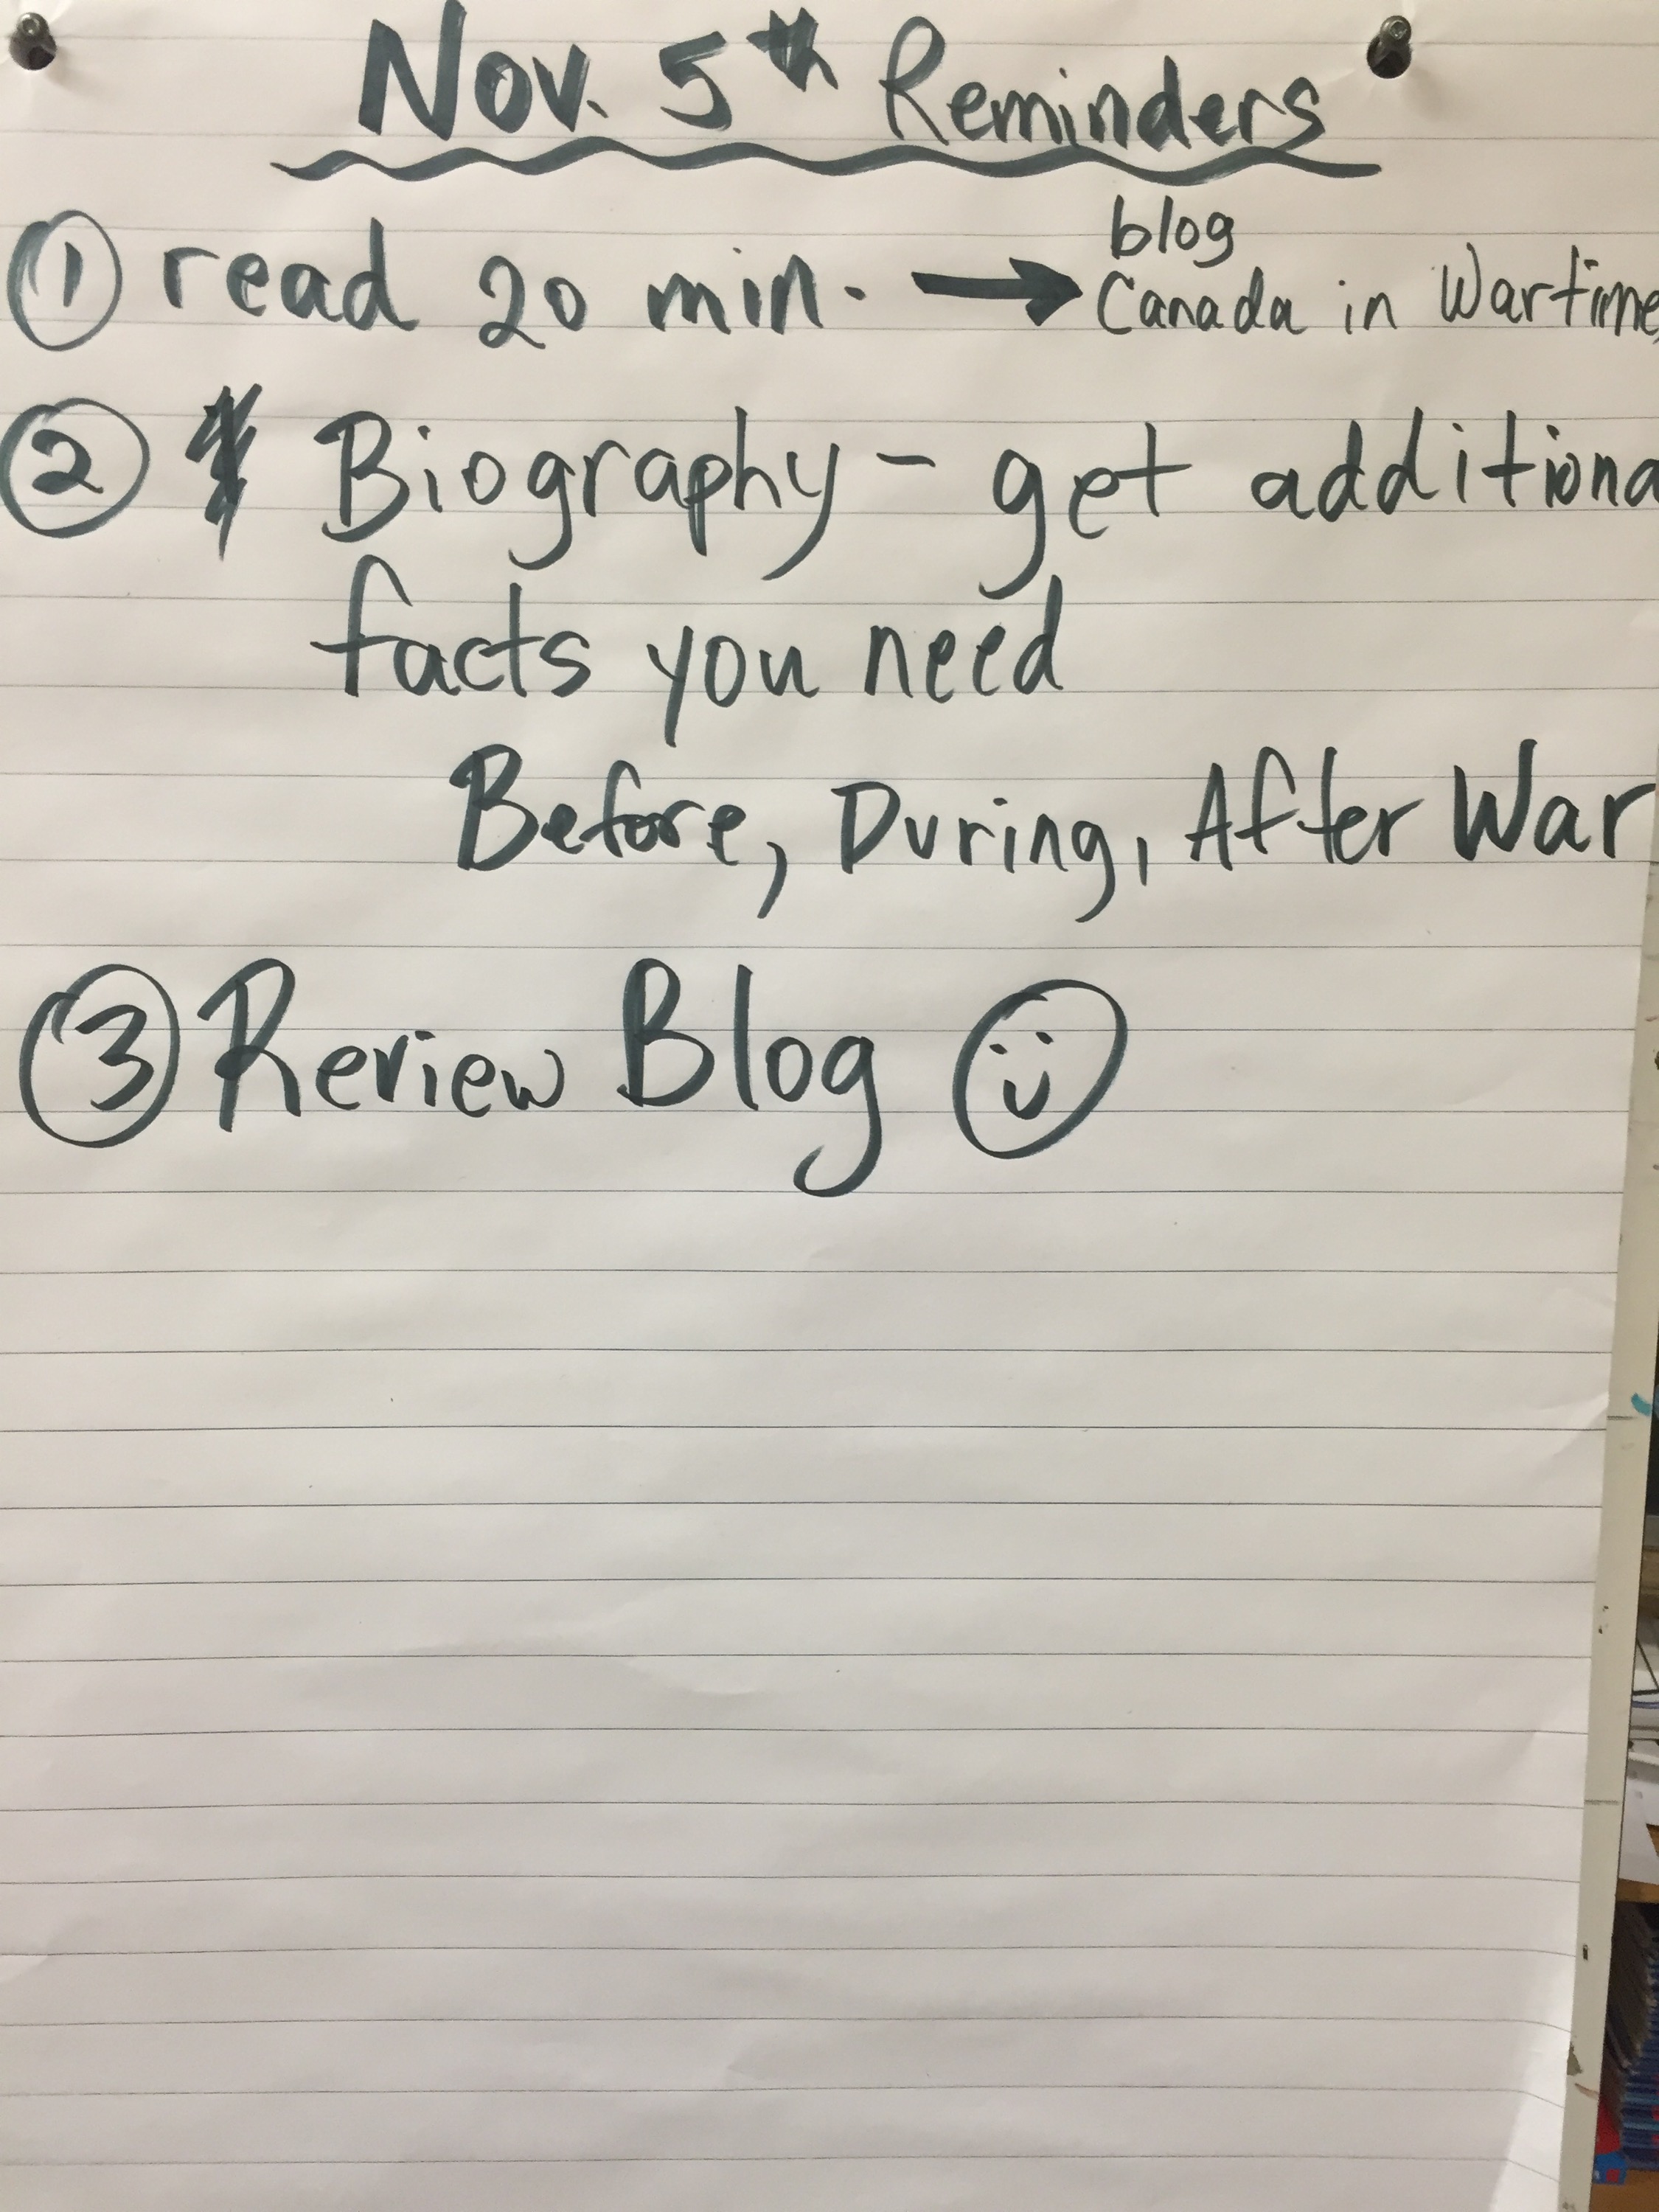 Nov. 5th Reminders
① read 20 min. → blog
Canada in Wartime
② Biography - get additiona
facts you need
Before, During, After War
③ Review Blog